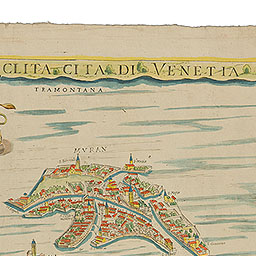 CLITA CITA DI VENETIA
TRAMONTANA
MVRAN